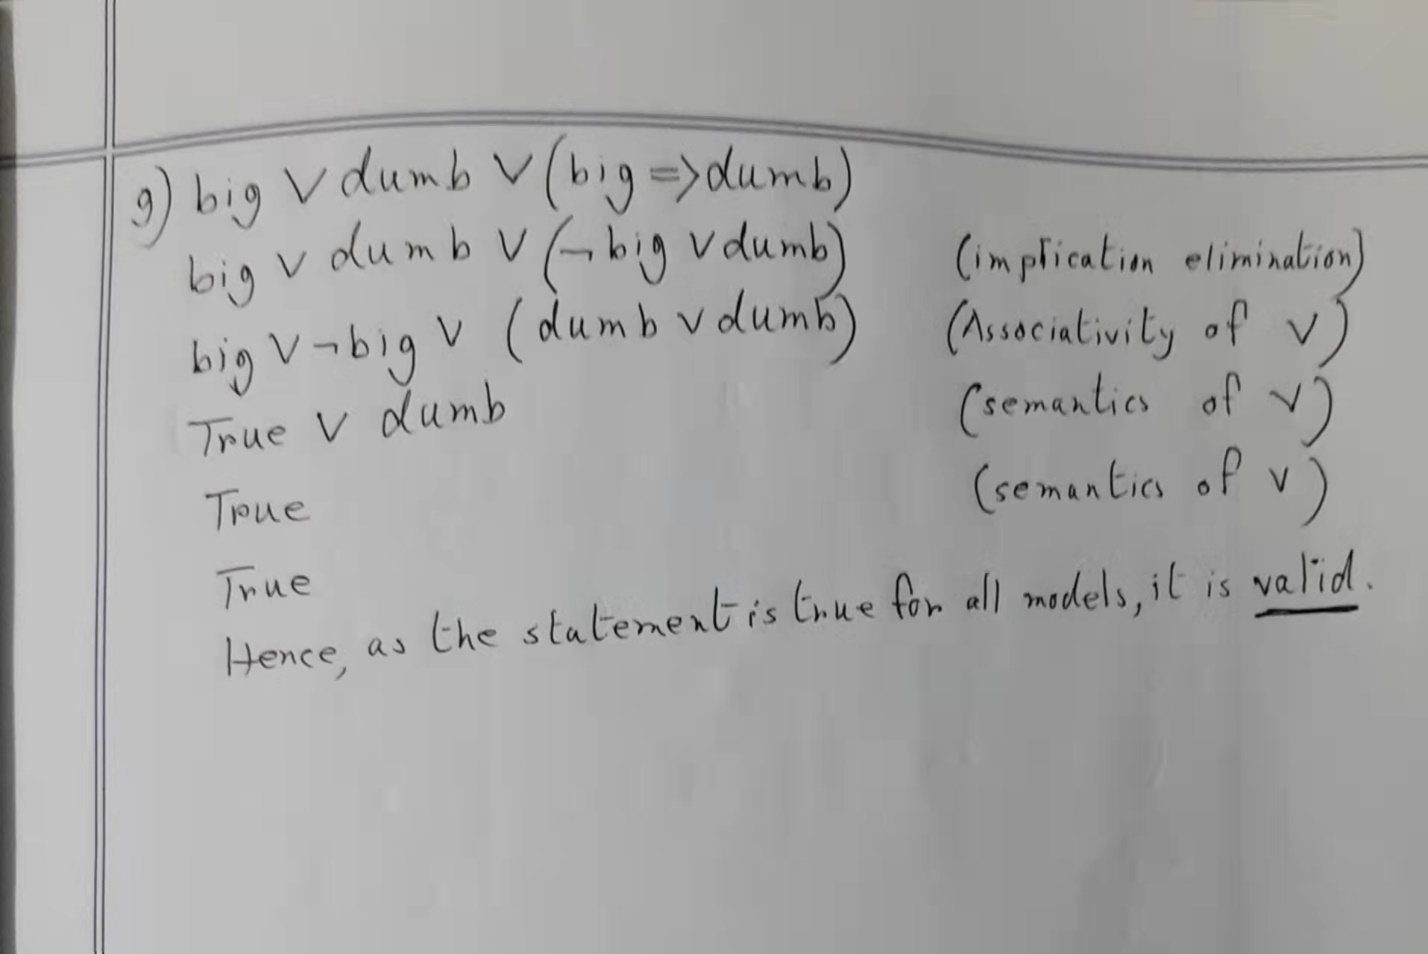 g) big ∨ dumb ∨ (big => dumb)
big ∨ dumb ∨ (¬big ∨ dumb) (implication elimination)
big ∨ ¬big ∨ (dumb ∨ dumb) (Associativity of ∨)
True ∨ dumb (semantics of ∨)
True (semantics of ∨)
True
Hence, as the statement is true for all models, it is valid.